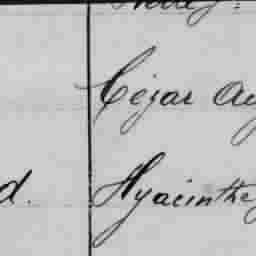 Cézar Au
d. Hyacinthe